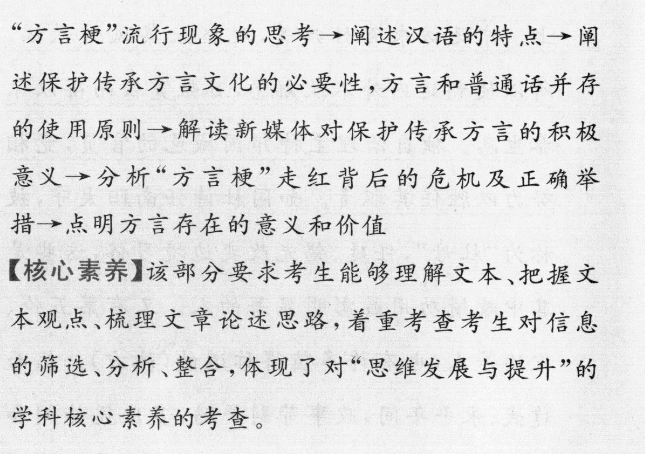 “方言梗”流行现象的思考→阐述汉语的特点→阐
述保护传承方言文化的必要性,方言和普通话并存
的使用原则→解读新媒体对保护传承方言的积极
意义→分析“方言梗”走红背后的危机及正确举
措→点明方言存在的意义和价值
【核心素养】该部分要求考生能够理解文本、把握文
本观点、梳理文章论述思路,着重考查考生对信息
的筛选、分析、整合,体现了对“思维发展与提升”的
学科核心素养的考查。